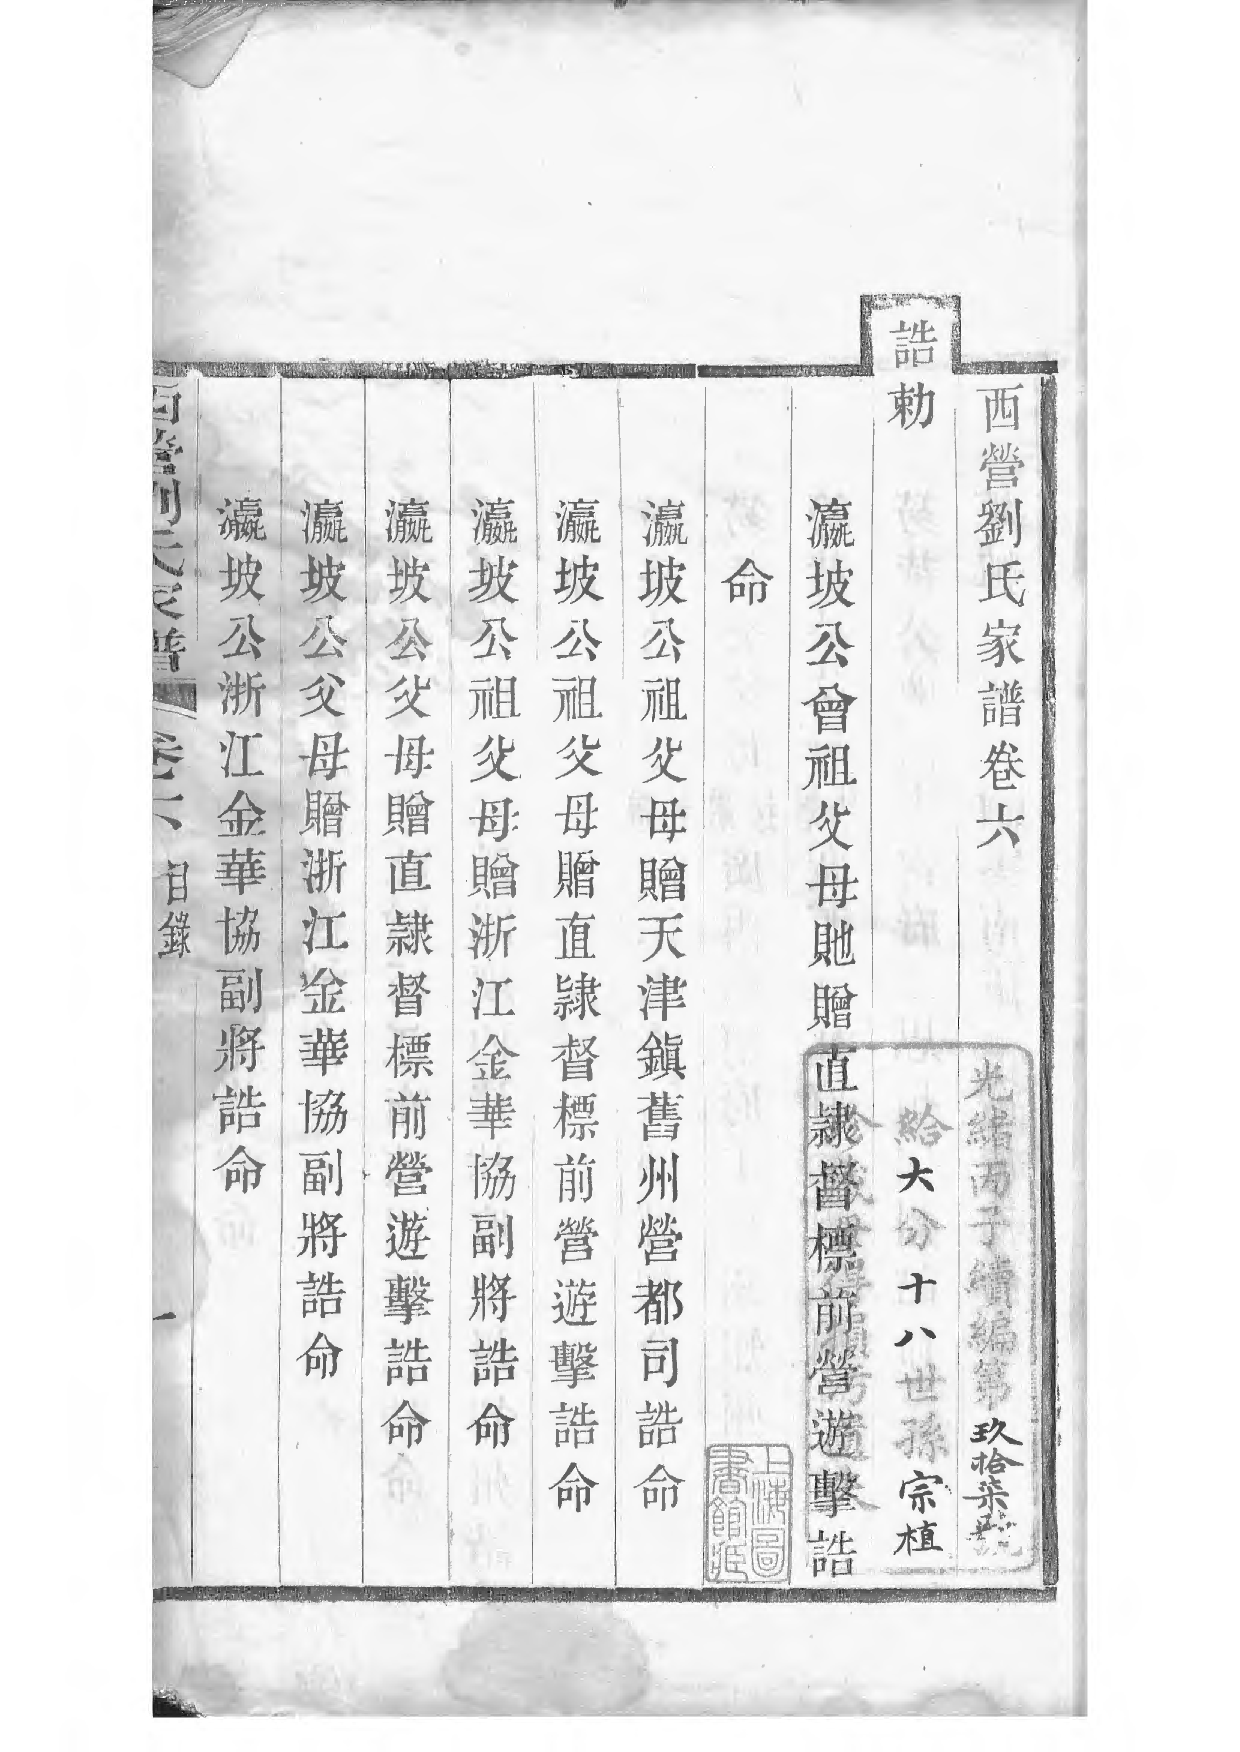 西營劉氏家譜卷六
誥勅
瀛坡公曾祖父母貤贈直隷督標前營遊擊誥
命
瀛坡公祖父母贈天津鎮舊州營都司誥命
瀛坡公祖父母贈直隷督標前營遊擊誥命
瀛坡公祖父母贈浙江金華協副將誥命
瀛坡公父母贈直隷督標前營遊擊誥命
瀛坡公父母贈浙江金華協副將誥命
瀛坡公浙江金華協副將誥命
西營劉氏家譜 卷六 目錄 一
光緒丙子續編第玖拾柒號
給大分十八世孫宗植
上海圖書館藏